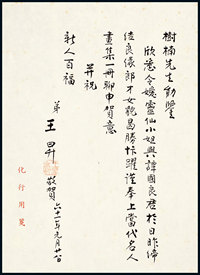 樹楠先生勛鑒
欣悉令嬡靈仙小姐與韓國良君於日昨締
結良緣郎才女貌曷勝忭躍謹奉上當代名人
畫集一冊聊申賀意
並祝
新人百福
弟
王昇
敬賀
六十一年元月廿八日
化行用箋